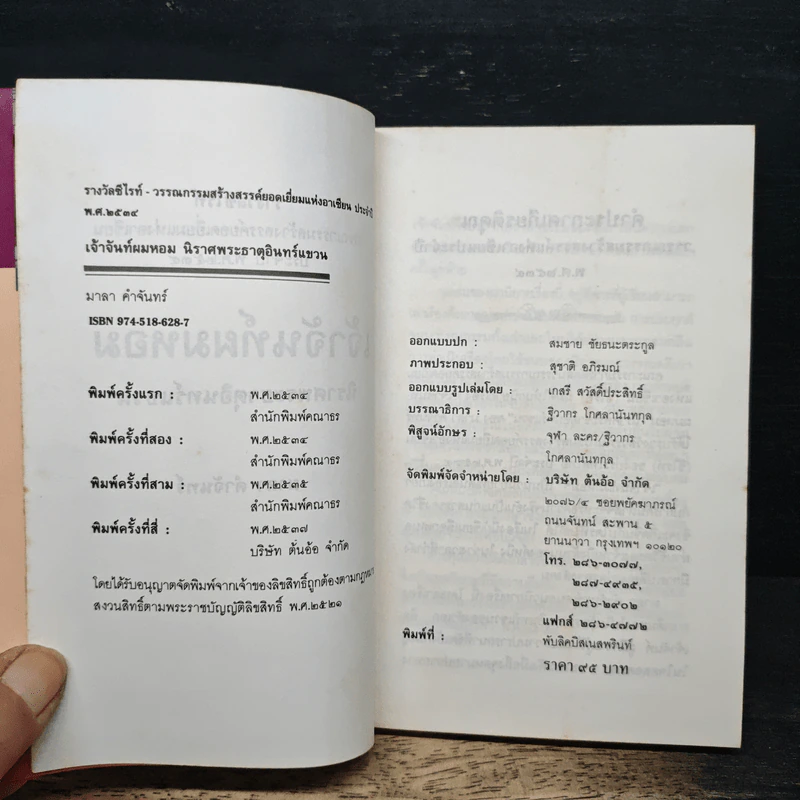 รางวัลซีไรท์ - วรรณกรรมสร้างสรรค์ยอดเยี่ยมแห่งอาเซียน ประจำปี
พ.ศ.๒๕๓๔
เจ้าจันท์ผมหอม นิราศพระธาตุอินทร์แขวน
มาลา คำจันทร์
ISBN 974-518-628-7
พิมพ์ครั้งแรก : พ.ศ.๒๕๓๔
สำนักพิมพ์คณาธร
พิมพ์ครั้งที่สอง : พ.ศ.๒๕๓๔
สำนักพิมพ์คณาธร
พิมพ์ครั้งที่สาม : พ.ศ.๒๕๓๕
สำนักพิมพ์คณาธร
พิมพ์ครั้งที่สี่ : พ.ศ.๒๕๓๗
บริษัท ต้นอ้อ จำกัด
โดยได้รับอนุญาตจัดพิมพ์จากเจ้าของลิขสิทธิ์ถูกต้องตามกฎหมาย
สงวนสิทธิ์ตามพระราชบัญญัติลิขสิทธิ์ พ.ศ.๒๕๒๑
ออกแบบปก : สมชาย ชัยธนะตระกูล
ภาพประกอบ : สุชาติ อภิรมณ์
ออกแบบรูปเล่มโดย : เกสรี สวัสดิ์ประสิทธิ์
บรรณาธิการ : ฐิวากร โกศลานันทกุล
พิสูจน์อักษร : จุฬา ละคร/ฐิวากร
โกศลานันทกุล
จัดพิมพ์จัดจำหน่ายโดย : บริษัท ต้นอ้อ จำกัด
๒๐๗๖/๔ ซอยพยัคฆาภรณ์
ถนนจันทน์ สะพาน ๕
ยานนาวา กรุงเทพฯ ๑๐๑๒๐
โทร. ๒๘๖-๓๐๗๗,
๒๘๗-๔๙๓๕,
๒๘๖-๒๙๐๒
แฟกส์ ๒๘๖-๔๗๗๒
พิมพ์ที่ : พับลิคบิสเนสพรินท์
ราคา ๙๕ บาท